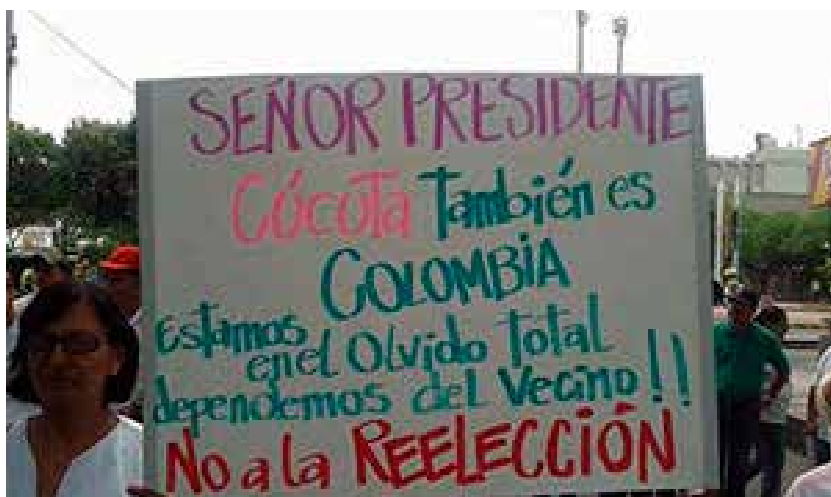 SEÑOR PRESIDENTE
Cúcuta También es
COLOMBIA
Estamos
en el Olvido Total
dependemos del Vecino!!
No a la REELECCIÓN